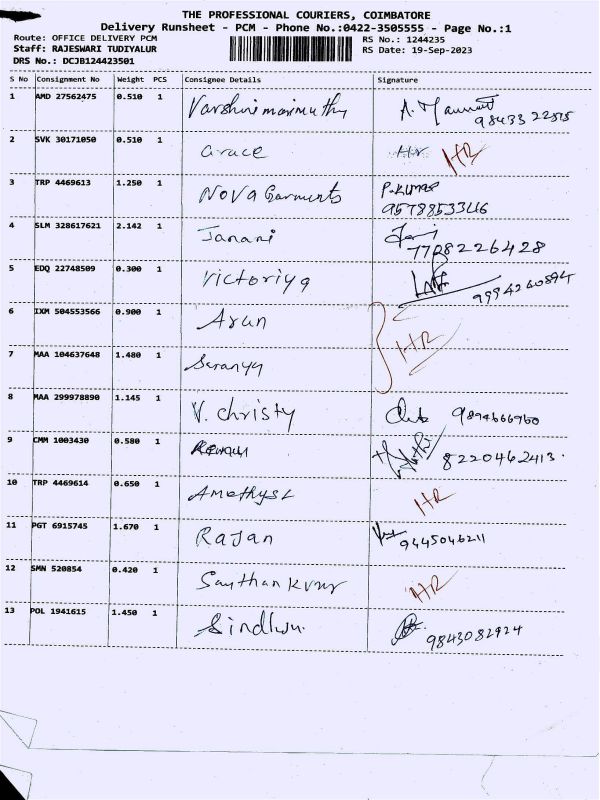 THE PROFESSIONAL COURIERS, COIMBATORE
Delivery Runsheet - PCM - Phone No.:0422-3505555 - Page No.:1
Route: OFFICE DELIVERY PCM RS No.: 1244235
Staff: RAJESWARI TUDIYALUR RS Date: 19-Sep-2023
DRS No.: DCJB124423501
S No Consignment No Weight PCS Consignee Details Signature
1 AMD 27562475 0.510 1 Varshinimarimuthu A.
98433 22515
2 SVK 30171050 0.510 1 Grace HR HR
3 TRP 4469613 1.250 1 Nova Garments P.KUMAR
9578853346
4 SLM 328617621 2.142 1 Janani
7708226428
5 EDQ 22748509 0.300 1 Victoriya 9994260894
6 IXM 504553566 0.900 1 Arun
HR
7 MAA 104637648 1.480 1 Saranya
8 MAA 299978890 1.145 1 V. Christy 9894666960
9 CMM 1003430 0.580 1 8220462413
10 TRP 4469614 0.650 1 Amethyst HR
11 PGT 6915745 1.670 1 Rajan 9445046211
12 SMN 520854 0.420 1 HR
13 POL 1941615 1.450 1 Sindhu. 9843082924